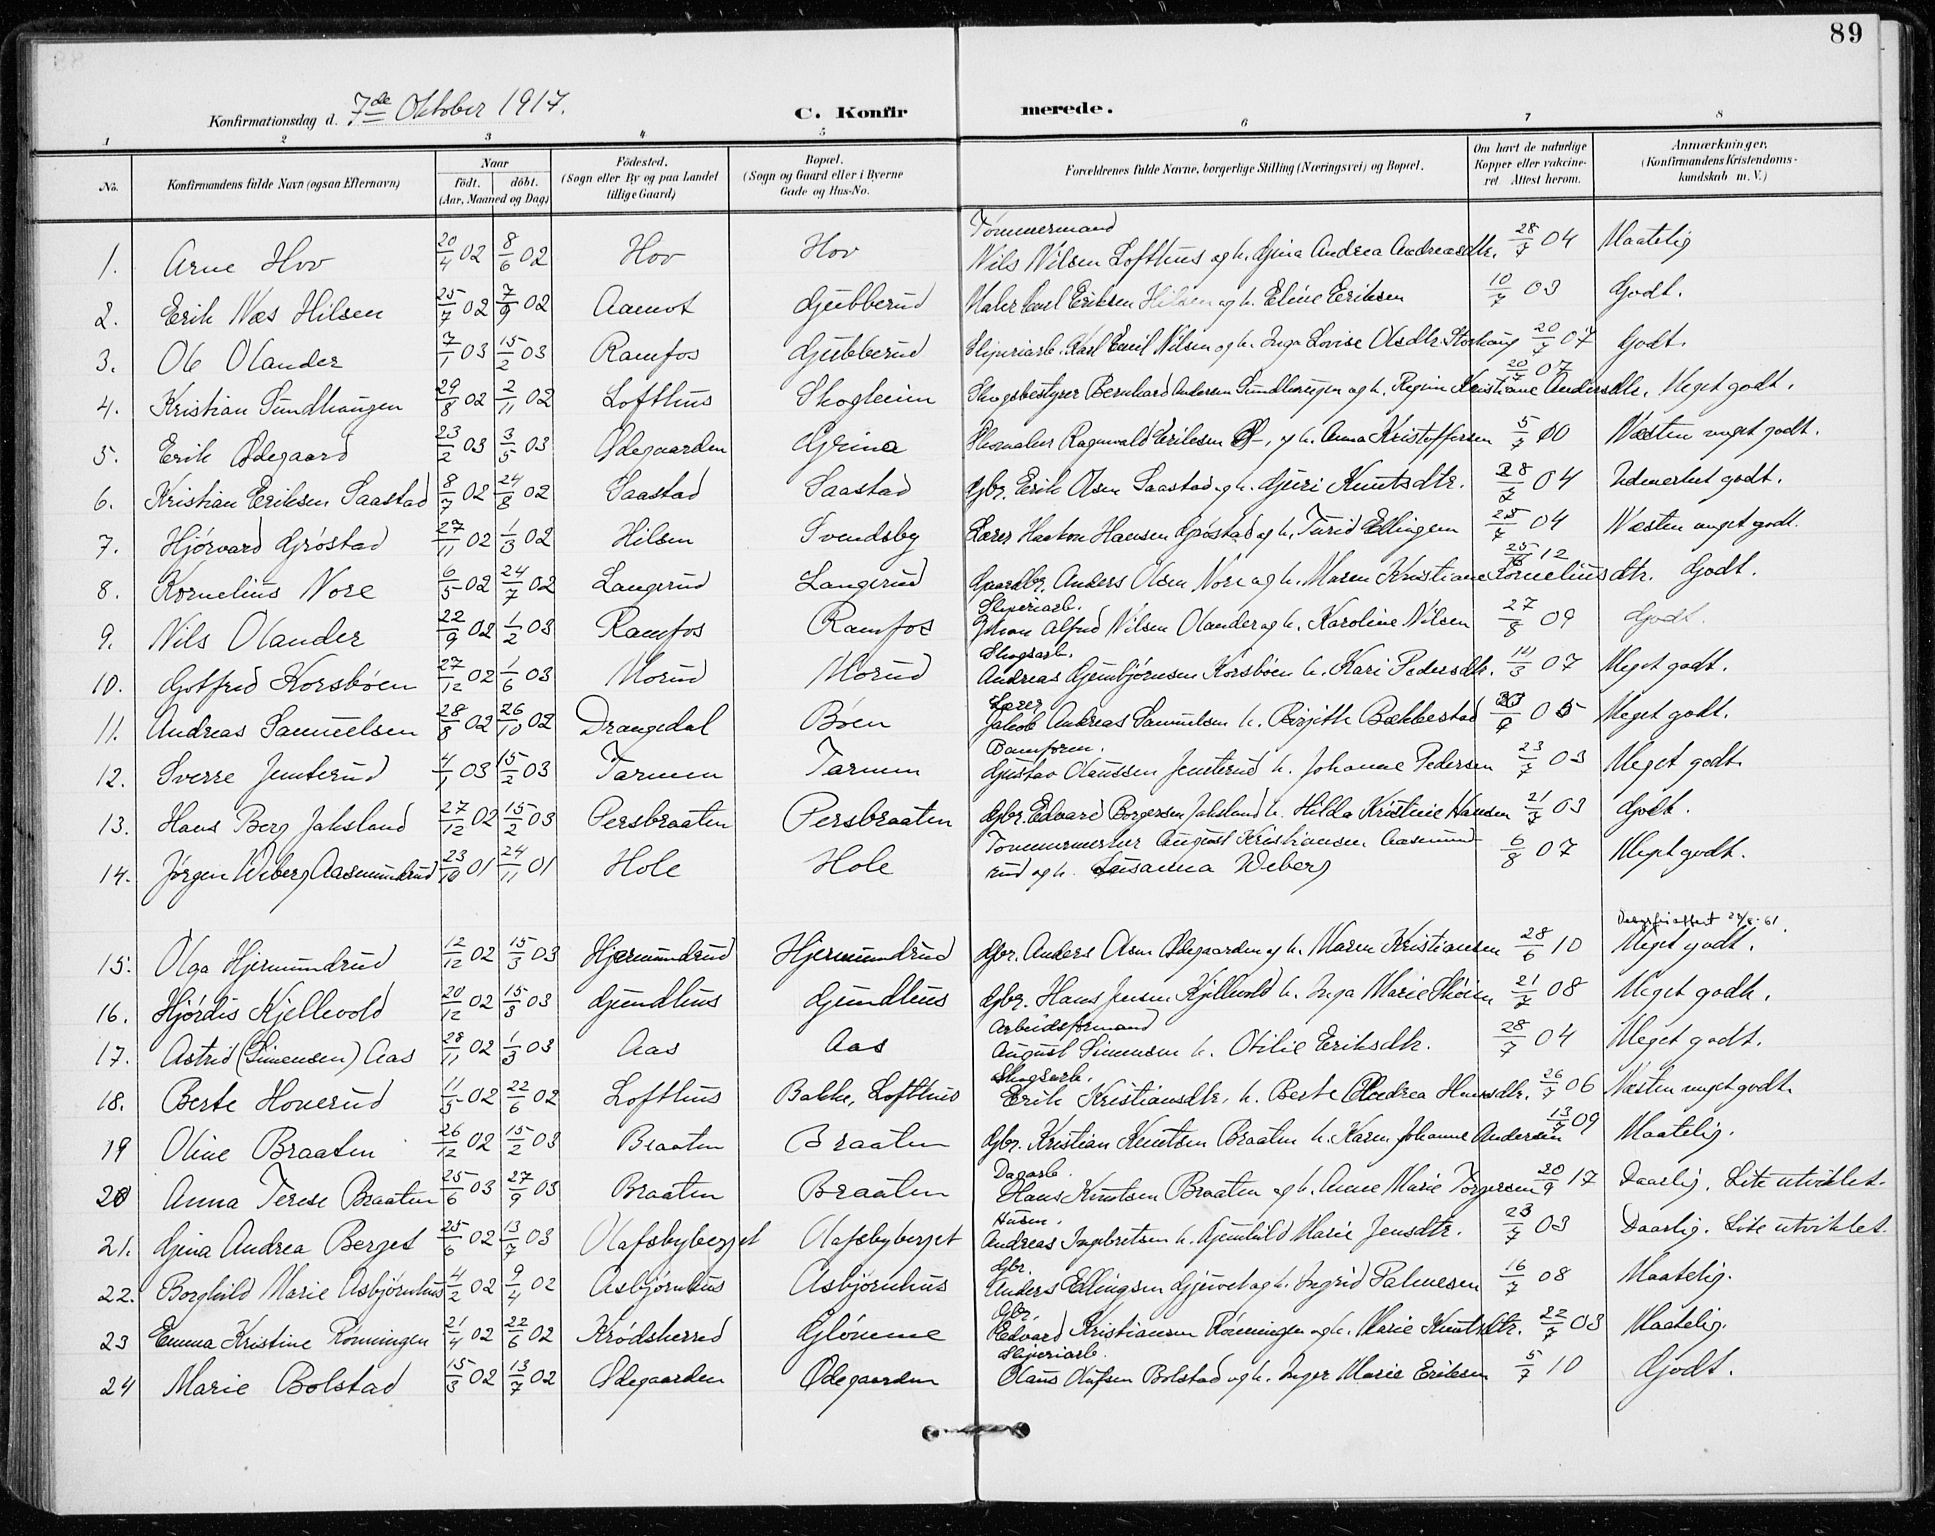 89
Konfirmationsdag d. 7de Oktober 1917.
C. Konfirmerede.
1 2 3 4 5 6 7 8
No. Konfirmandens fulde Navn (ogsaa Efternavn) Naar født. døbt. (Aar, Maaned og Dag) Fødested. (Sogn eller By og paa Landet tillige Gaard) Bopæl. (Sogn og Gaard eller i Byerne Gade og Hus-No. Forældrenes fulde Navne, borgerlige Stilling (Næringsvei) og Bopæl. Om havt de naturlige Kopper eller vakcineret. Attest herom. Anmærkninger. (Konfirmandens Kristendomskundskab m. V.)
Tømmermand
1. Arne Hov 20/4 02 8/6 02 Hov Hov Nils Nilsen Lofthus og h. Gina Andrea Andreasdtr. 28/7 04 Maatelig
2. Erik Næs Hilsen 25/7 02 7/9 02 Aamot Gubberud Maler Carl Eriksen Hilsen og h. Eline Eriksen 10/7 03 Godt.
3. Ole Olander 7/1 03 15/2 03 Ramfos Gubberud Sliperiarb. Karl Emil Nilsen og h. Inga Lovise Olsdtr. Storhaug 20/7 07 Godt.
4. Kristian Sundhaugen 29/8 02 2/11 02 Lofthus Skogheim Skogsbestyrer Bernhard Andersen Sundhaugen og h. Regine Kristiane Andersdtr. 20/7 07 Meget godt.
5. Erik Ødegaard 23/2 03 3/5 03 Ødegaarden Grina Skomaker Ragnvald Eriksen Ø-, og h. Anna Kristoffersen 5/7 10 Næsten meget godt.
6. Kristian Eriksen Saastad 8/7 02 24/8 02 Saastad Saastad Gbr. Erik Olsen Saastad og h. Guri Knutsdtr. 28/7 04 Udmerket godt.
7. Hjørvard Grøstad 27/11 02 1/3 02 Hilsen Svendsby Lærer Haakon Hansen Grøstad og h. Turid Ellingsen 25/7 04 Næsten meget godt.
8. Kornelius Nore 6/5 02 24/7 02 Langerud Langerud Gaardbr. Anders Olsen Nore og h. Maren Kristiane Korneliusdtr. 12 Godt.
Sliperiarb.
9. Nils Olander 22/9 02 1/2 03 Ramfos Ramfos Johan Alfred Nilsen Olander og h. Karoline Nilsen 27/8 09 Godt.
Skogsarb.
10. Gotfred Korsbøen 27/12 02 1/6 03 Morud Morud Andreas Gunbjørnsen Korsbøen h. Kari Pedersdtr. 14/3 07 Meget godt.
Lærer
11. Andreas Samuelsen 28/8 02 26/10 02 Drangedal Bøen Jakob Andreas Samuelsen h. Birgith Bækkestad 05 Meget godt.
12. Sverre Jemterud 4/1 03 15/2 03 Tarmen Tarmen Gustav Olaussen Jemterud h. Johanne Pedersen 23/7 03 Meget godt.
13. Hans Berg Jaksland 27/12 02 15/2 03 Persbraaten Persbraaten Gbr. Edvard Borgersen Jaksland h. Hilda Kristine Hansen 21/7 03 Godt.
14. Jørgen Weberg Aasmundrud 23/10 01 24/11 01 Hole Hole Tømmermerker August Kristiansen Aasmundrud og h. Susanna Weberg 6/8 07 Meget godt.
15. Olga Hjermundrud 12/12 02 15/3 03 Hjermundrud Hjermundrud Gbr. Anders Olsen Ødegaarden og h. Maren Kristiansen 28/6 10 Meget godt.
16. Hjørdis Kjellevold 20/12 02 15/3 03 Gundhus Gundhus Gbr. Hans Jensen Kjellevold h. Inga Marie Skøien 21/7 08 Meget godt.
Arbeidsformand
17. Astrid (Simensen) Aas 28/11 02 1/3 03 Aas Aas August Simensen h. Otilie Eriksdtr. 28/7 04 Meget godt.
Skogsarb.
18. Berte Hoverud 11/5 02 22/6 02 Lofthus Bakke, Lofthus Erik Kristiansdtr. h. Berte Andrea Hansdtr. 26/7 06 Næsten meget godt.
19 Oline Braaten 26/12 02 15/2 03 Braaten Braaten Gbr. Kristian Knutsen Braaten h. Karen Johanne Andersen 13/7 09 Maatelig.
Dagarb.
20 Anna Terese Braaten 25/6 03 27/9 03 Braaten Braaten Hans Knutsen Braaten og h. Anne Marie Torgersen 20/9 17 Daarlig. Lite utviklet.
Husm.
21. Gina Andrea Berget 25/6 02 13/7 03 Olafsbyberget Olafsbyberget Andreas Ingebretsen h. Gunhild Marie Jensdtr. 23/7 03 Daarlig. Lite utviklet.
Gbr.
22. Borghild Marie Asbjørnhus 4/2 02 9/4 02 Asbjørnhus Asbjørnhus Anders Ellingsen Gjuvet og h. Ingrid Palmesen 16/7 08 Maatelig.
Gbr.
23 Emma Kristine Rønningen 21/4 02 22/6 02 Krødsherred Glømme Edvard Kristiansen Rønningen og h. Marie Knutsdtr. 22/7 03 Maatelig.
Sliperiarb.
24 Marie Bolstad 15/3 02 13/7 02 Ødegaarden Ødegaarden Olaus Olufsen Bolstad og h. Inger Marie Eriksen 5/7 10 Godt.